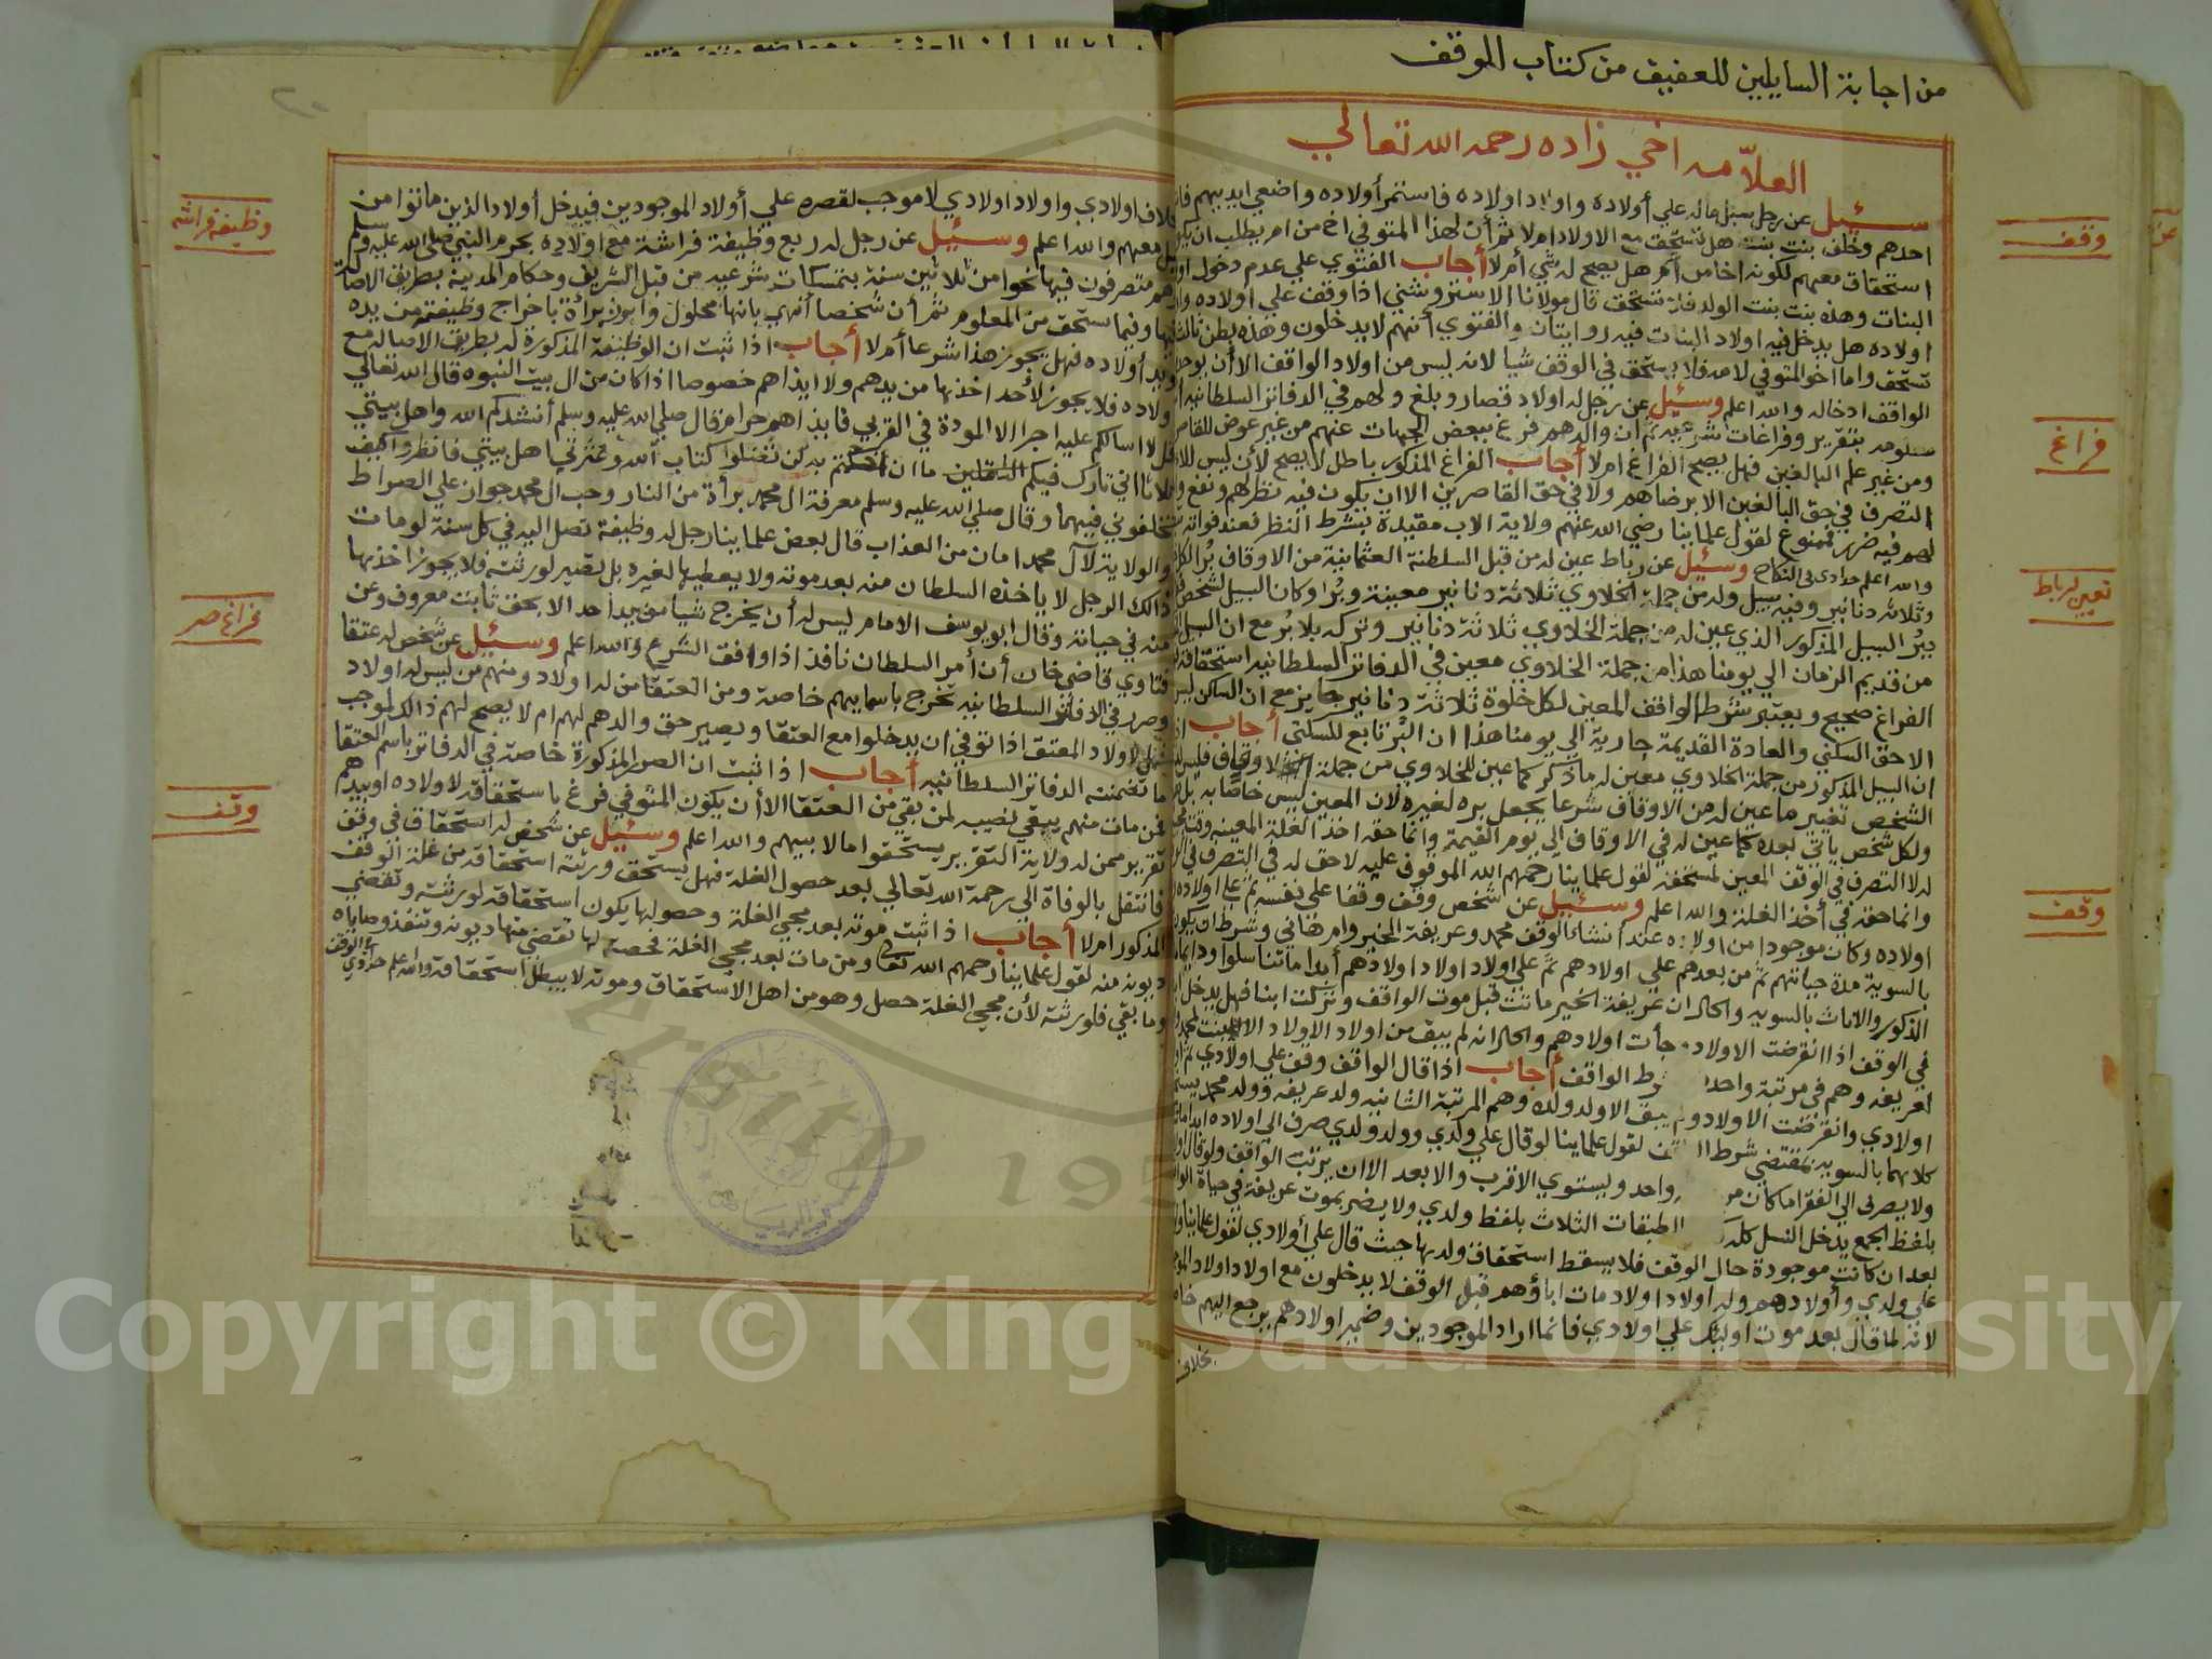 من اجابة السايلين للعفيف من كتاب الوقف
العلامه اخي زاده رحمه الله تعالي
سئيل عن رجل سبل ماله علي أولاده واولاد اولاده فاستمر أولاده واضعي ايديهم
احدهم وخلف بنت بنت هل تستحق مع الاولاد ام لا ثم أن لهذا المتوفي اخ من ام يطلب ان
استحقاق معهم لكونه اخا من أم هل يصح له شي أم لا أجاب الفتوي علي عدم دخول
البنات وهذه بنت بنت الولد فلا تستحق قال مولانا الاستروشني اذا وقف علي أولاده
اولاده هل يدخل فيه اولاد البنات فيه روايتان والفتوي أنهم لا يدخلون وهذه بطن
تستحق واما اخو المتوفي لامه فلا يستحق في الوقف شيا لانه ليس من اولاد الواقف الا أن
الواقف ادخاله والله اعلم وسئيل عن رجل له اولاد قصار وبلغ ولهم في الدفاتر السلطانيه
بتقرير وفراغات شرعيه ثم ان والدهم فرغ ببعض الجهات عنهم من غير عوض
ومن غير علم البالغين فهل يصح الفراغ ام لا أجاب الفراغ المذكور باطل لا يصح لأن ليس
التصرف في حق البالغين الا برضاهم ولا في حق القاصرين الا ان يكون فيه نظر لهم ونفع
لهم فيه ضرر فممنوع لقول علماينا رضي الله عنهم ولاية الاب مقيدة بشرط النظر فعند فواته
والله اعلم وسئيل عن رباط عين له من قبل السلطنة العثمانية من الاوقاف
وثلاثة دنانير وفيه سبيل وله من جملة الخلاوي ثلاثة دنانير معينة وبُر وكان السبيل لشخص
بُر السبيل المذكور الذي عين له من جملة الخلاوي ثلاثة دنانير وتركه بلا بُر مع ان السبيل
من قديم الزمان الي يومنا هذا من جملة الخلاوي معين في الدفاتر السلطانيه استحقاقه
الفراغ صحيح ويعتبر شرط الواقف المعين لكل خلوة ثلاثة دنانير جايز مع ان الساكن ليس
الا حق السكني والعادة القديمة جارية الي يومنا هذا ان البُر تابع للسكني أجاب
ان السبيل المذكور من جملة الخلاوي معين له ما ذكر كما عين للخلاوي من جملة الاوقاف فليس
الشخص تغيير ما عين له من الاوقاف شرعا يجعل بره لغيره لان المعين ليس خاصا به بل
ولكل شخص ياتي بعده كما عين له في الاوقاف الي يوم القيمة وانما حقه اخذ الغلة المعينه
له لا التصرف في الوقف المعين لمستحقه لقول علماينا رحمهم الله الموقوف عليه لا حق له في التصرف في
وانما حقه في أخذ الغلة والله اعلم وسئيل عن شخص وقف وقفا علي نفسه ثم علي اولاده
اولاده وكان موجودا من اولاده عند أنشائه الوقف محمد وعريفة الخير وام هاني وشرط ان يكون
بالسوية مدة حياتهم ثم من بعدهم علي اولادهم ثم علي اولاد اولاد اولادهم أبدا ما تناسلوا
الذكور والاناث بالسويه والحال ان عريفة الخير ماتت قبل موت الواقف وتركت ابنا فهل يدخل
في الوقف اذا انقرضت الاولاد وجأت اولادهم والحال انه لم يبق من اولاد الاولاد الا
لعريفه وهم في مرتبة واحدة رط الواقف أجاب اذا قال الواقف وقف علي اولادي ثم
اولادي وانقرضت الاولاد ولم يبق الا ولد ولده وهم المرتبة الثانيه ولد عريفه وولد محمد
كلاهما بالسويه بمقتضي شرط لقول علماينا لو قال علي ولدي وولد ولدي صرف الي اولاده ابدا
ولا يصرف الي الفقرا ما كان واحد ويستوي الاقرب والابعد الا ان يرتب الواقف
بلفظ الجمع يدخل النسل كله الطبقات الثلاث بلفظ ولدي ولا يضر بموت عريفة في حياة
بعد ان كانت موجودة حال الوقف فلا يسقط استحقاق ولدها حيث قال علي أولادي لقول علماينا
علي ولدي وأولادهم وله اولاد اولاد مات اباؤهم قبل الوقف لا يدخلون مع اولاد اولاد
لانه لما قال بعد موت اوليك علي اولادي فانما اراد الموجودين وضمير اولادهم يرجع اليهم
بخلاف
وقف
فراغ
تعيين لرباط
وقف
بخلاف اولادي واولاد اولادي لا موجب لقصره علي أولاد الموجودين فيدخل أولاد الذين ماتوا من
قبل معهم والله اعلم وسئيل عن رجل له ربع وظيفة فراشة مع اولاده بحرم النبي صلي الله عليه وسلم
هم متصرفون فيها نحوا من ثلاثين سنة بتمسكات شرعيه من قبل الشريف وحكام المدينة بطريق الاصالة
فيها وفيما يستحق من المعلوم ثم أن شخصا أنهي بانها محلول وابرز برأة باخراج وظيفته من يده
ويد أولاده فهل يجوز هذا شرعا أم لا أجاب اذا ثبت ان الوظيفة المذكورة له بطريق الاصاله مع
ولاده فلا يجوز لأحد اخذها من يدهم ولا ايذاهم خصوصا اذا كان من ال بيت النبوه قال الله تعالي
قل لا اسالكم عليه اجرا الا المودة في القربي فايذاهم حرام وقال صلي الله عليه وسلم أنشدكم الله واهل بيتي
ثلاثا اني تارك فيكم الثقلين ما ان به لن تضلوا كتاب الله وعترتي اهل بيتي فانظروا كيف
تخلفوني فيهما وقال صلي الله عليه وسلم معرفة ال محمد برأة من النار وحب ال محمد جواز علي الصراط
والولاية لآل محمد امان من العذاب قال بعض علماينا رجل له وظيفة تصل اليه في كل سنة لو مات
ذالك الرجل لا ياخذه السلطان منه بعد موته ولا يعطيها لغيره بل تعتبر لورثته فلا يجوز اخذها
منه في حياته وقال ابو يوسف الامام ليس له أن يخرج شيا من يد احد الا بحق ثابت معروف وعن
فتاوي قاضي خان أن أمر السلطان نافذ اذا وافق الشرع والله اعلم وسئيل عن شخص له عتقا
وصرر في الدفاتر السلطانيه تخرج باسمايهم خاصة ومن العتقا من له اولاد ومنهم من ليس له اولاد
فهل لاولاد المعتق اذا توفي ان يدخلوا مع العتقا ويصير حق والدهم لهم ام لا يصح لهم ذالك لموجب
ما تضمنته الدفاتر السلطانيه أجاب اذا ثبت ان الصرر المذكورة خاصة في الدفاتر باسم العتقا
فمن مات منهم يبقي نصيبه لمن بقي من العتقا الا أن يكون المتوفي فرغ باستحقاقه لاولاده او بيدهم
تقرير ممن له ولاية التقرير يستحقوا مالا بيهم والله اعلم وسئيل عن شخص له استحقاق في وقف
فانتقل بالوفاة الي رحمة الله تعالي بعد حصول الغلة فهل يستحق ورثته استحقاقه من غلة الوقف
المذكور ام لا أجاب اذا ثبت موته بعد مجي الغلة وحصولها يكون استحقاقه لورثته وتقضي
ديونه منه لقول علماينا رحمهم الله تعالي ومن مات بعد مجي الغلة فحصته لها تقضي منها ديونه وتنفذ وصاياه
وما بقي فلورثته لأن مجي الغلة حصل وهو من اهل الاستحقاق وموته لا يبطل استحقاقه والله اعلم
وظيفة فراشه
فراغ صر
وقف
Copyright © King Saud University